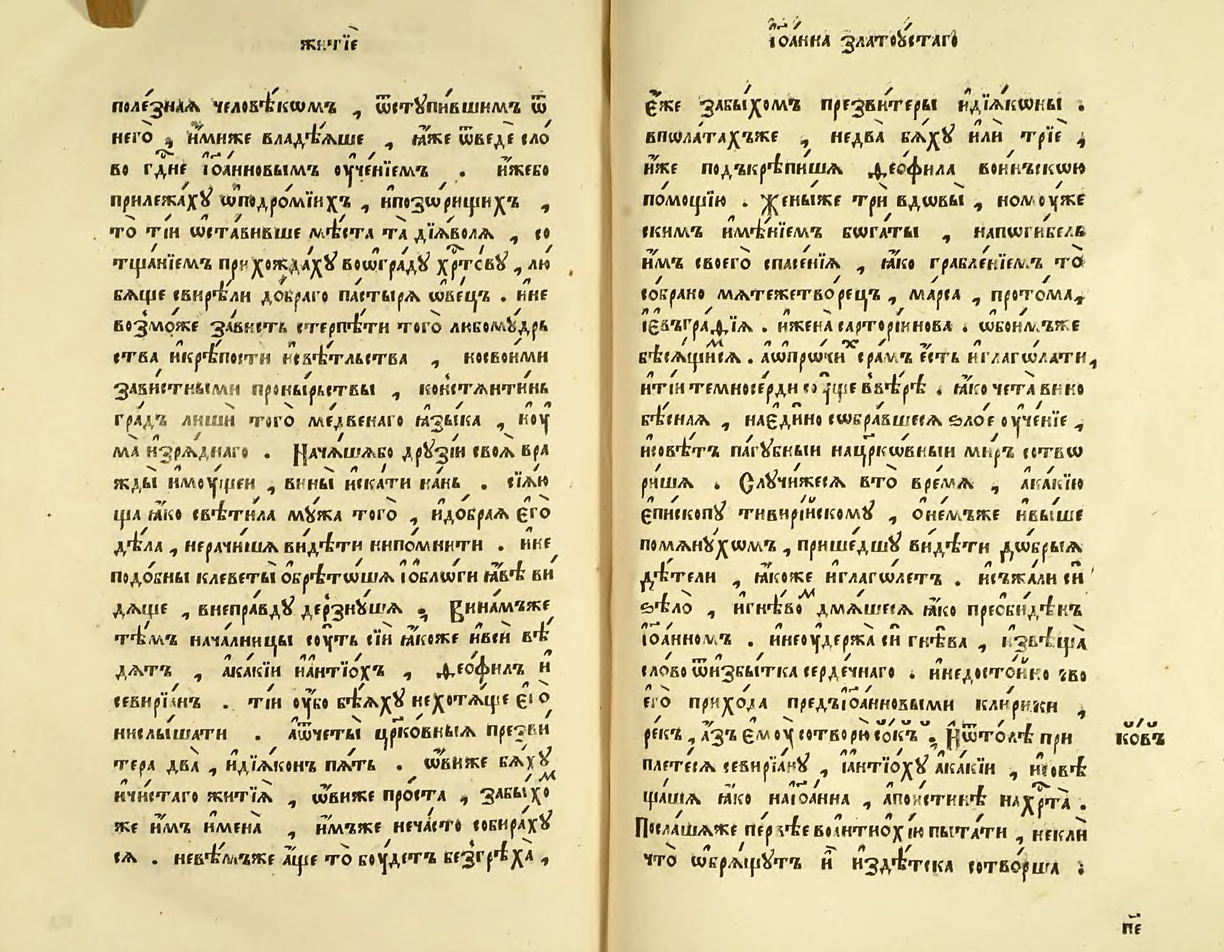 житїѐ
поле́знаѧ человѣ́кѡмъ , ѿстꙋпи́вшимъ ѿ
него̀ , и҆́миже владѣ́ѧше , ꙗ҆́же ѿведѐ сло́
во гдⷭ҇не і҆ѡа́нновымъ оу҆че́нїемъ . и҆́жебо
прилежа́хꙋ ѡ҆подро́мїихъ , и҆позѡ́рищихъ ,
то̀ ті́и ѡ҆ста́вивше мѣ́ста та̀ дїѧ́волѧ , со
тща́нїемъ прихожда́хꙋ воѡ҆гра́дꙋ хрⷭ҇то́вꙋ , лю
бѧ́ще свирѣ́ли до́браго па́стырѧ ѡ҆ве́цъ . и҆не
возмо́же за́висть стерпѣ́ти того̀ любомꙋ́дрь
ства и҆крѣ́пости и҆свѣ́тльства , носвои́ми
зави́стными проны́рьствы , ко́нстѧнти́нь
гра́дъ лишѝ того̀ ме́двенаго ꙗ҆зы́ка , и҆оу҆
ма̀ и҆зрѧ́днаго . Нача́шѧбо дрꙋ́зїи своѧ̀ вра
жды̀ и҆мꙋ́щеи , вины̀ и҆ска́ти на́нь . сїѧ́ю
ща ꙗ҆́ко свѣти́ла мꙋ́жа того̀ , и҆до́браѧ є҆го̀
дѣ́ла , нерачи́шѧ ви́дѣти нипо́мнити . и҆не
подо́бны клеветы̀ ѡ҆брѣто́шѧ і҆ѻ҆бло́ги ꙗ҆́вѣ ви́
дѧще , внепра́вдꙋ дерзнꙋ́шѧ . Вина́мъже
тѣ́мъ нача́лницы сꙋ́ть сїѝ ꙗ҆́коже и҆всѝ вѣ́
дѧтъ , а҆ка́кїи и҆а҆нтїо́хъ , ѳео́филъ и҆
севирїа́нъ . ті́и оу҆́бо бѣ́ѧхꙋ нехотѧ́ще є҆го̀
нислы́шати . а҆ѿчеты̀ цр҃ко́вныѧ презви́
тера два̀ , и҆дїѧ́конъ пѧ́ть . ѡ҆́виже бѧ́хꙋ
и҆чи́стаго житїѧ̀ , ѡ҆́виже про́ста , забы́хоⷨ
же и҆̀мъ и҆мена̀ , и҆́мъже неча́сто собира́хꙋ
сѧ . невѣ́мъже а҆́ще то̀ бꙋ́детъ безгрѣха̀ ,
і҆ѡа́нна златоꙋ́стаго
є҆́же забы́хомъ презви́теры и҆дїѧ́коны .
впола́тахъже , недва̀ бѧ́хꙋ и҆лѝ трїѐ ,
и҆́же подъкрѣпи́шѧ ѳео́фила во́иньскою
по́мощїю . Же́ныже трѝ вдовы̀ , номꙋ́же
скимъ и҆мѣ́нїемъ бога́ты , напоги́бель
и҆̀мъ своего̀ спасе́нїѧ , ꙗ҆́ко грабле́нїемъ то̀
со́брано мѧтежетво́рецъ , ма́рса , про́тома ,
і҆є҆въгра́фїѧ . и҆жена̀ сарторі́инова . ѡ҆бои́мъже
бѣсѧ́щиⷨсѧ . а҆ѡ҆про́чиⷯ сра́мъ є҆́сть и҆глаго́лати ,
и҆ті́и темносе́рди сꙋ́ще ввѣ́рѣ . ꙗ҆́ко чета̀ вино
бѣ́снаѧ , нає҆ди́но собра́вшесѧ ѕло́е оу҆че́нїе ,
и҆совѣ́тъ па́гꙋбныи нацр҃ко́вныи ми́ръ сотво
ри́шѧ . Слꙋчи́жесѧ вто̀ вре́мѧ , а҆ка́кїю
є҆пи́скопꙋ тивирі́йскомꙋ , ѻ҆не́мъже и҆вы́ше
помѧнꙋ́хомъ , прише́дшꙋ ви́дѣти до́брыѧ
дѣ́тели , ꙗ҆́коже и҆глаго́летъ . и҆съжа́ли сѝ
ѕѣлѡ̀ , и҆гнѣ́воⷨ дмѧ́шесѧ ꙗ҆́ко преоби́дѣнъ
і҆ѡа́нномъ . и҆неоу҆держа̀ сѝ гнѣ́ва , и҆звѣща̀
сло́во ѿи҆збы́тка серде́чнаго . и҆недосто́йно сво
его̀ прихо́да предъі҆ѡа́нновыми кли́рики ,
ре́къ , а҆́зъ є҆мꙋ̀ сотворю̀ со́къ . И҆ѿто́лѣ при
ко́въ
плете́сѧ севирїа́нꙋ , і҆а҆нтїо́хꙋ а҆ка́кїи , и҆совѣ
ща́шѧ ꙗ҆́ко наі҆ѡа́нна , а҆пои́стинѣ нахрⷭ҇та̀ .
Посла́шѧже пе́рвѣе воа҆нтиохі́ю пыта́ти , неклѝ
что̀ ѡ҆брѧ́щꙋтъ и҆̀ и҆здѣ́тска сотво́рша :
п҃е